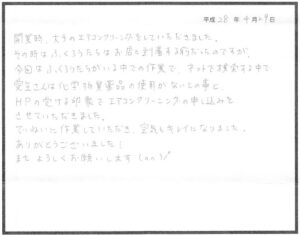 平成28年4月29日
開業時、大手のエアコンクリーニングをしていただきました。
その時はふくろうたちはお店に到着する前だったのですが、
今回はふくろうたちがいる中での作業で、ネットで検索する中で
さんは化学物質薬品の使用がないとの事と
HPの安する印象でエアコンクリーニングの申し込みを
させていただきました。
ていねいに作業していただき、空気もキレイになりました。
ありがとうございました!
またよろしくお願いします(^^)